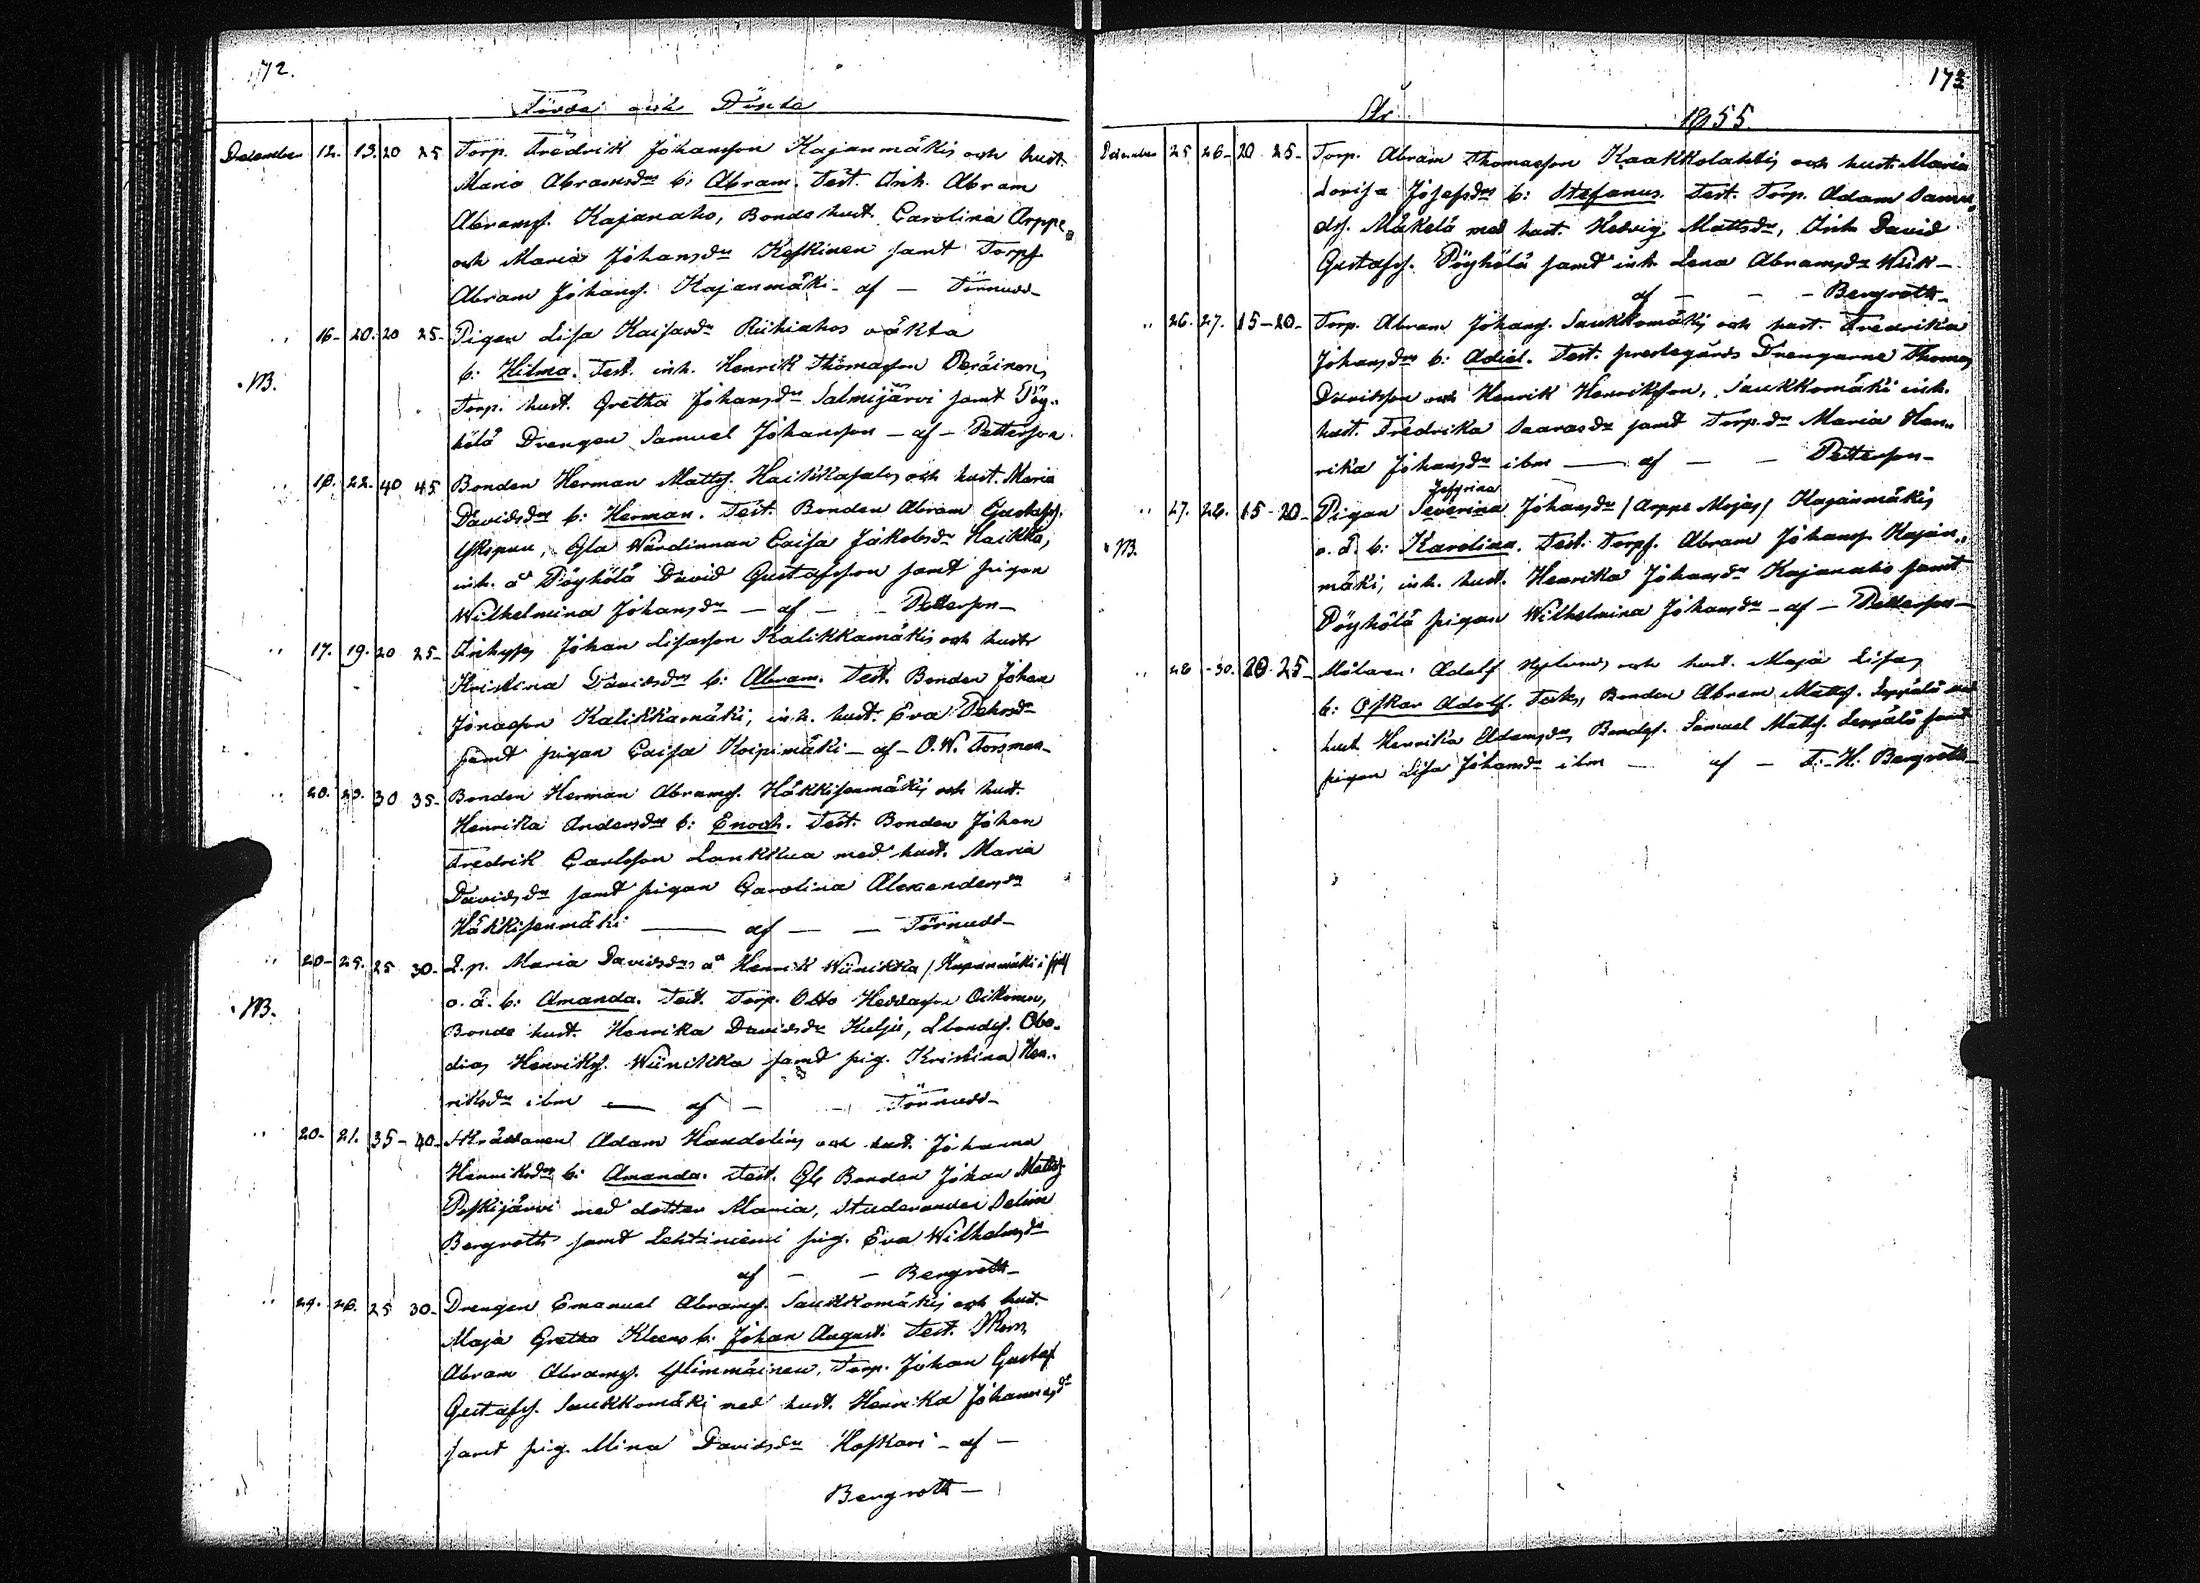 172.
Födda och Döpta
December 12. 13. 20 25 Torp. Fredrik Johansson Kajanmäkis och hust.
Maria Abramsdrs b: Abram. Test. Inh. Abram
Abramss. Kajanaho, Bonde hust. Carolina Arppe
och Maria Johansdr Koskinen samt Torps
Abram Johanss. Kajanmäki - af - Törnudd -
" 16 - 20. 20 25 - Pigan Lisa Kaisasdr Riihiahos oäkta
NB. b: Hilma. Test. inh. Henrik Thomasson Peräinen,
Torp. hust. Gretha Johansdr Salmijärvi samt Pöy-
hölä Drengen Samuel Johansson - af - Petterson
" 18. 22. 40 45 Bonden Herman Matts. Haikkasalos och hust. Maria
Davidsdrs b: Herman. Test. Bonden Abram Gustafss.
Gla Värdinnan Caisa Jakobsdr Haikka,
inh. å Pöyhölä David Gustafsson samt pigan
Wilhelmina Johansdr - af - - Petterson -
" 17. 19. 20 25 - Inhyss Johan Lisasson Kalikkamäkis och hustr
Kristina Davidsdrs b: Abram. Test. Bonden Johan
Jonasson Kalikkamäki, inh. hust. Eva Pehrsdr
samt pigan Caisa Koipimäki - af - O. W. Forsman -
" 20. 23. 30 35 - Bonden Herman Abramss. Häkkisenmäkis och hust.
Henrika Andersdrs b: Enoch. Test. Bonden Johan
Fredrik Carlsson Lankkua med hust. Maria
Davidsdr samt pigan Carolina Alexandersdr
Häkkisenmäki - af - - Törnudd -
" 20 - 25. 25 30 - L.p. Maria Davidsdrs å Henrik Wiinikka / Kupunmäki i
NB. o. ä. b: Amanda. Test. Torp. Otto Heddasson Oikonen,
Bonde hust. Henrika Davidsdr Kulju, Lbondes. Oba-
dias Henrikss. Wiinikka samt pig. Kristina Hen-
riksdr ibm - af - - Törnudd -
" 20 - 21. 35 - 40 - Skräddaren Adam Handolins och hust. Johanna
Henriksdrs b: Amanda. Test. Gla Bonden Johan Matts.
Poskijärvi med dotter Maria, Studeranden Delim
Bergroth samt Lehtiniemi pig. Eva Wilhelmsdr
af - - Bergroth -
" 24. 26. 25 30 - Drengen Emanuel Abramss. Saukkomäkis och hust.
Maja Gretha Kleens b: Johan August. Test.
Abram Abramss. Ylimmäinen, Torp. Johan Gustaf
Gustafss. Saukkomäki med hust. Henrika Johannesdr
samt pig. Mina Davidsdr Koskari - af -
Bergroth -
173
År 1855.
December 25 26 - 20 25 - Torp. Abram Thomasson Kaakkolahtis och hust. Maria
Lovisa Josefsdrs b: Stefanus. Test. Torp. Adam Samu-
els. Mäkelä med hust. Hedvig Mattsdr, Inh David
Gustafss. Pöyhölä samt inh Lena Abramsdr Wiik -
af - - - Bergroth -
" 26. 27. 15 - 20 - Torp. Abram Johanss. Saukkomäkis och hust. Fredrika
Johansdrs b: Adiel. Test. prestegårds Drengarne Thomas
Davidsson och Henrik Henriksson, Saukkomäki inh.
hust. Fredrika Saarasdr samt Torp.dr Maria Hen-
rika Johansdr ibm - af - - Petterson -
Josefina
" 27. 28. 15 - 20 - Pigan Severina Johansdr / Arppe Majas / Kajanmäkis
NB. o. ä. b: Karolina. Test. Torps. Abram Johanss. Kajan-
mäki, inh. hust. Henrika Johansdr Kajanaho samt
Pöyhölä pigan Wilhelmina Johansdr - af - Petterson -
" 28 - 30. 20 25 - Målaren Adolf och hust. Maja Lisas
b: Oskar Adolf. Test. Bonden Abram Matts. Leppälä med
hust. Henrika Adamsdr, Bondes. Samuel Matts. Leppälä samt
pigan Lisa Johansdr ibm - af - F. H. Bergroth -